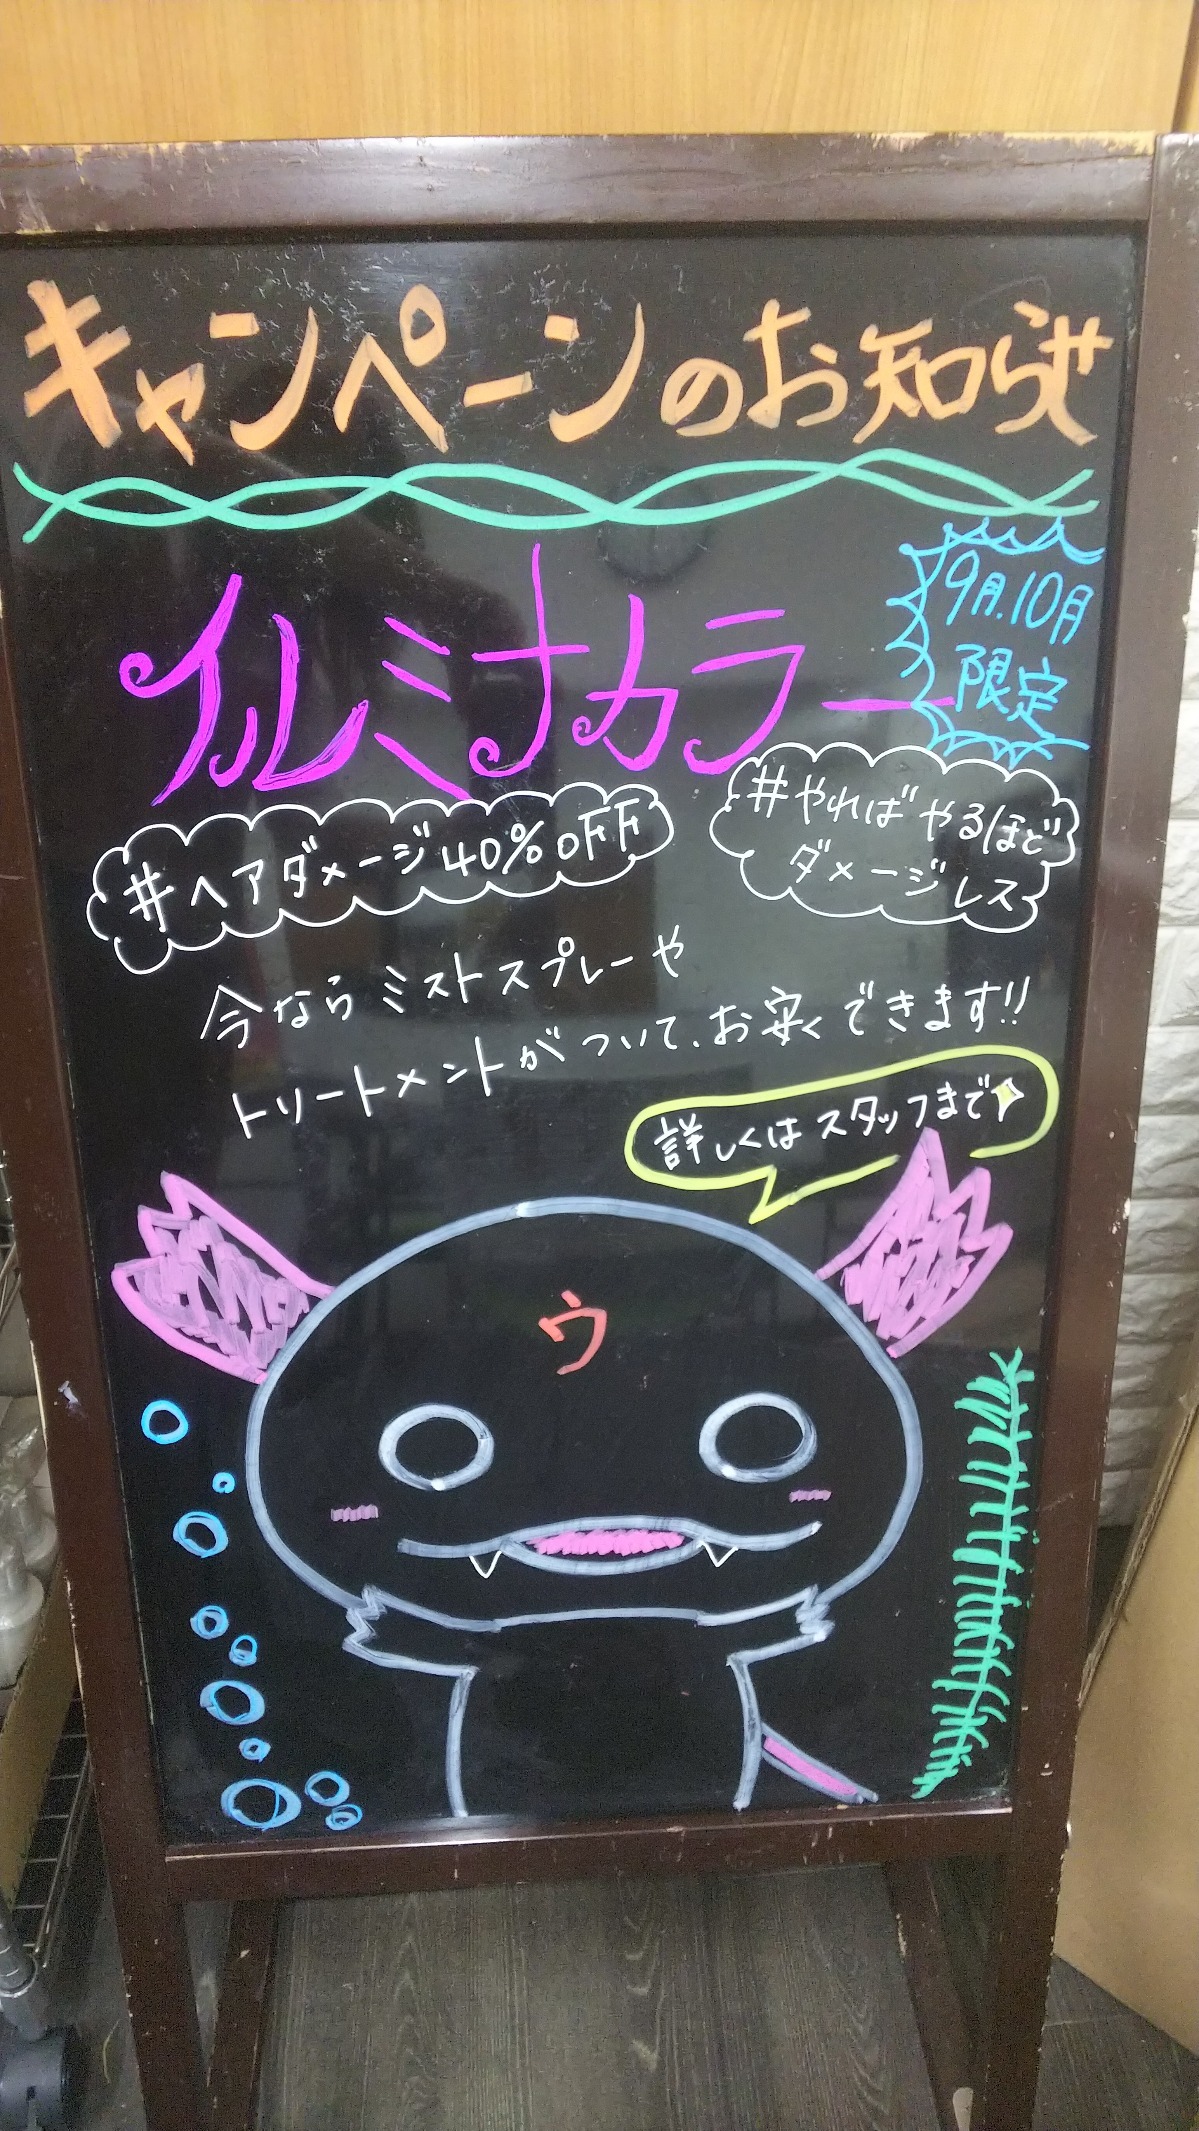 キャンペーンのお知らせ
イルミナカラー
9月.10月
限定
#ヘアダメージ40%OFF
#やればやるほど
ダメージレス
今ならミストスプレーや
トリートメントがついて、お安くできます!!
詳しくはスタッフまで
ウ